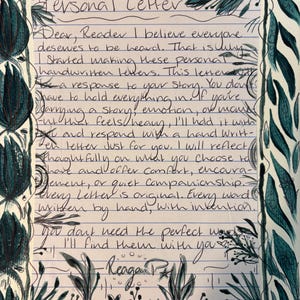 Personal Letter
Dear, Reader I believe everyone
deserves to be heard. That is why
I started making these personal
handwritten letters. This letter will
be a response to your story. You don't
have to hold everything. If you're
carrying a story, emotion, or
that feels heavy, I'll hold it with
you and respond with a hand writt-
en letter just for you. I will reflect
thoughtfully on what you choose to
share and offer comfort, encoura-
gement, or quiet companionship.
Every Letter is original. Every word
written by hand, with intention.
You dont need the perfect
I'll find them with you
Reagan